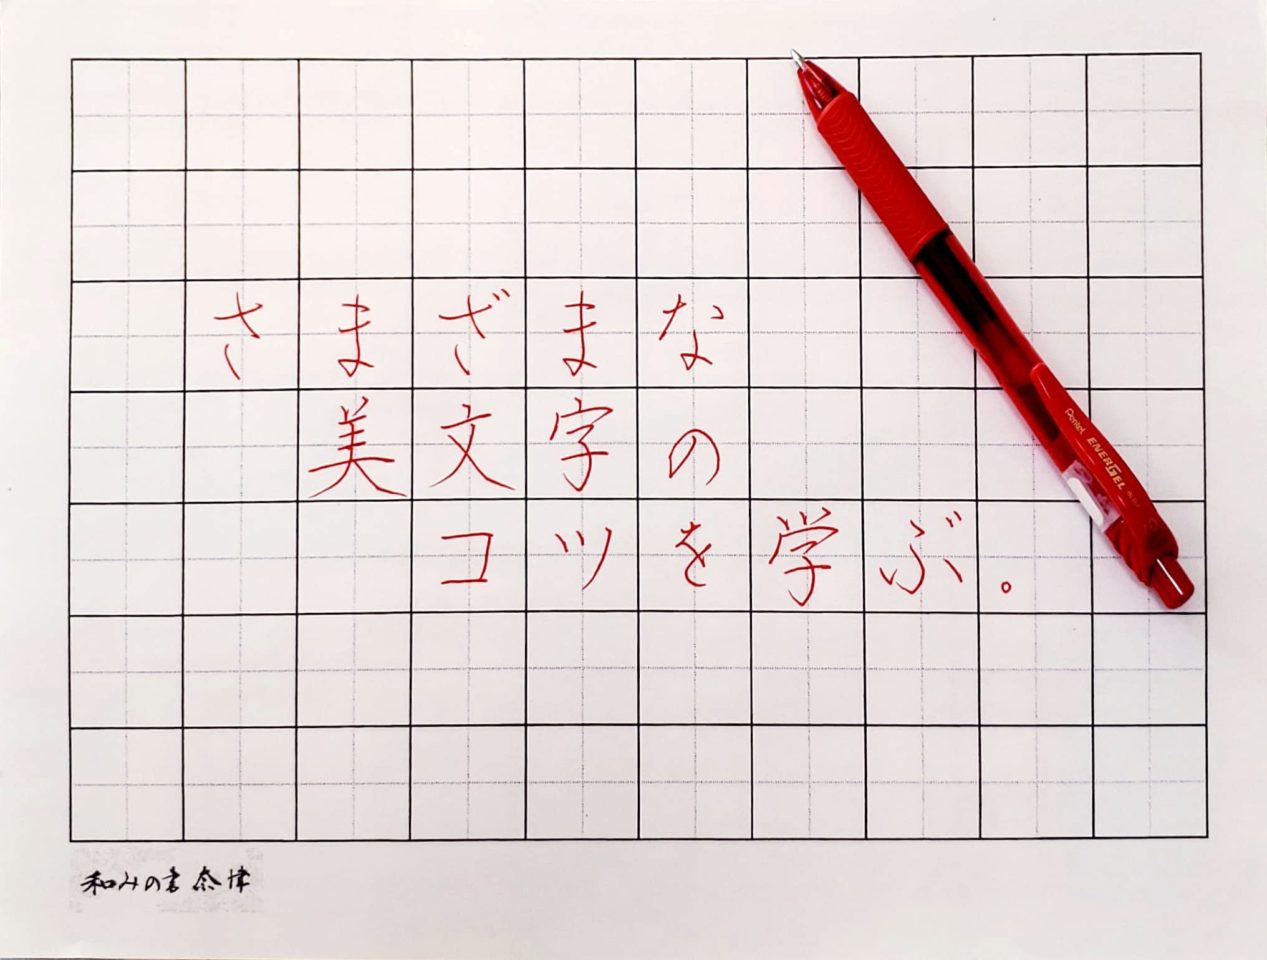 さまざまな
美文字の
コツを学ぶ。
Pentel ENERGEL
和みの書